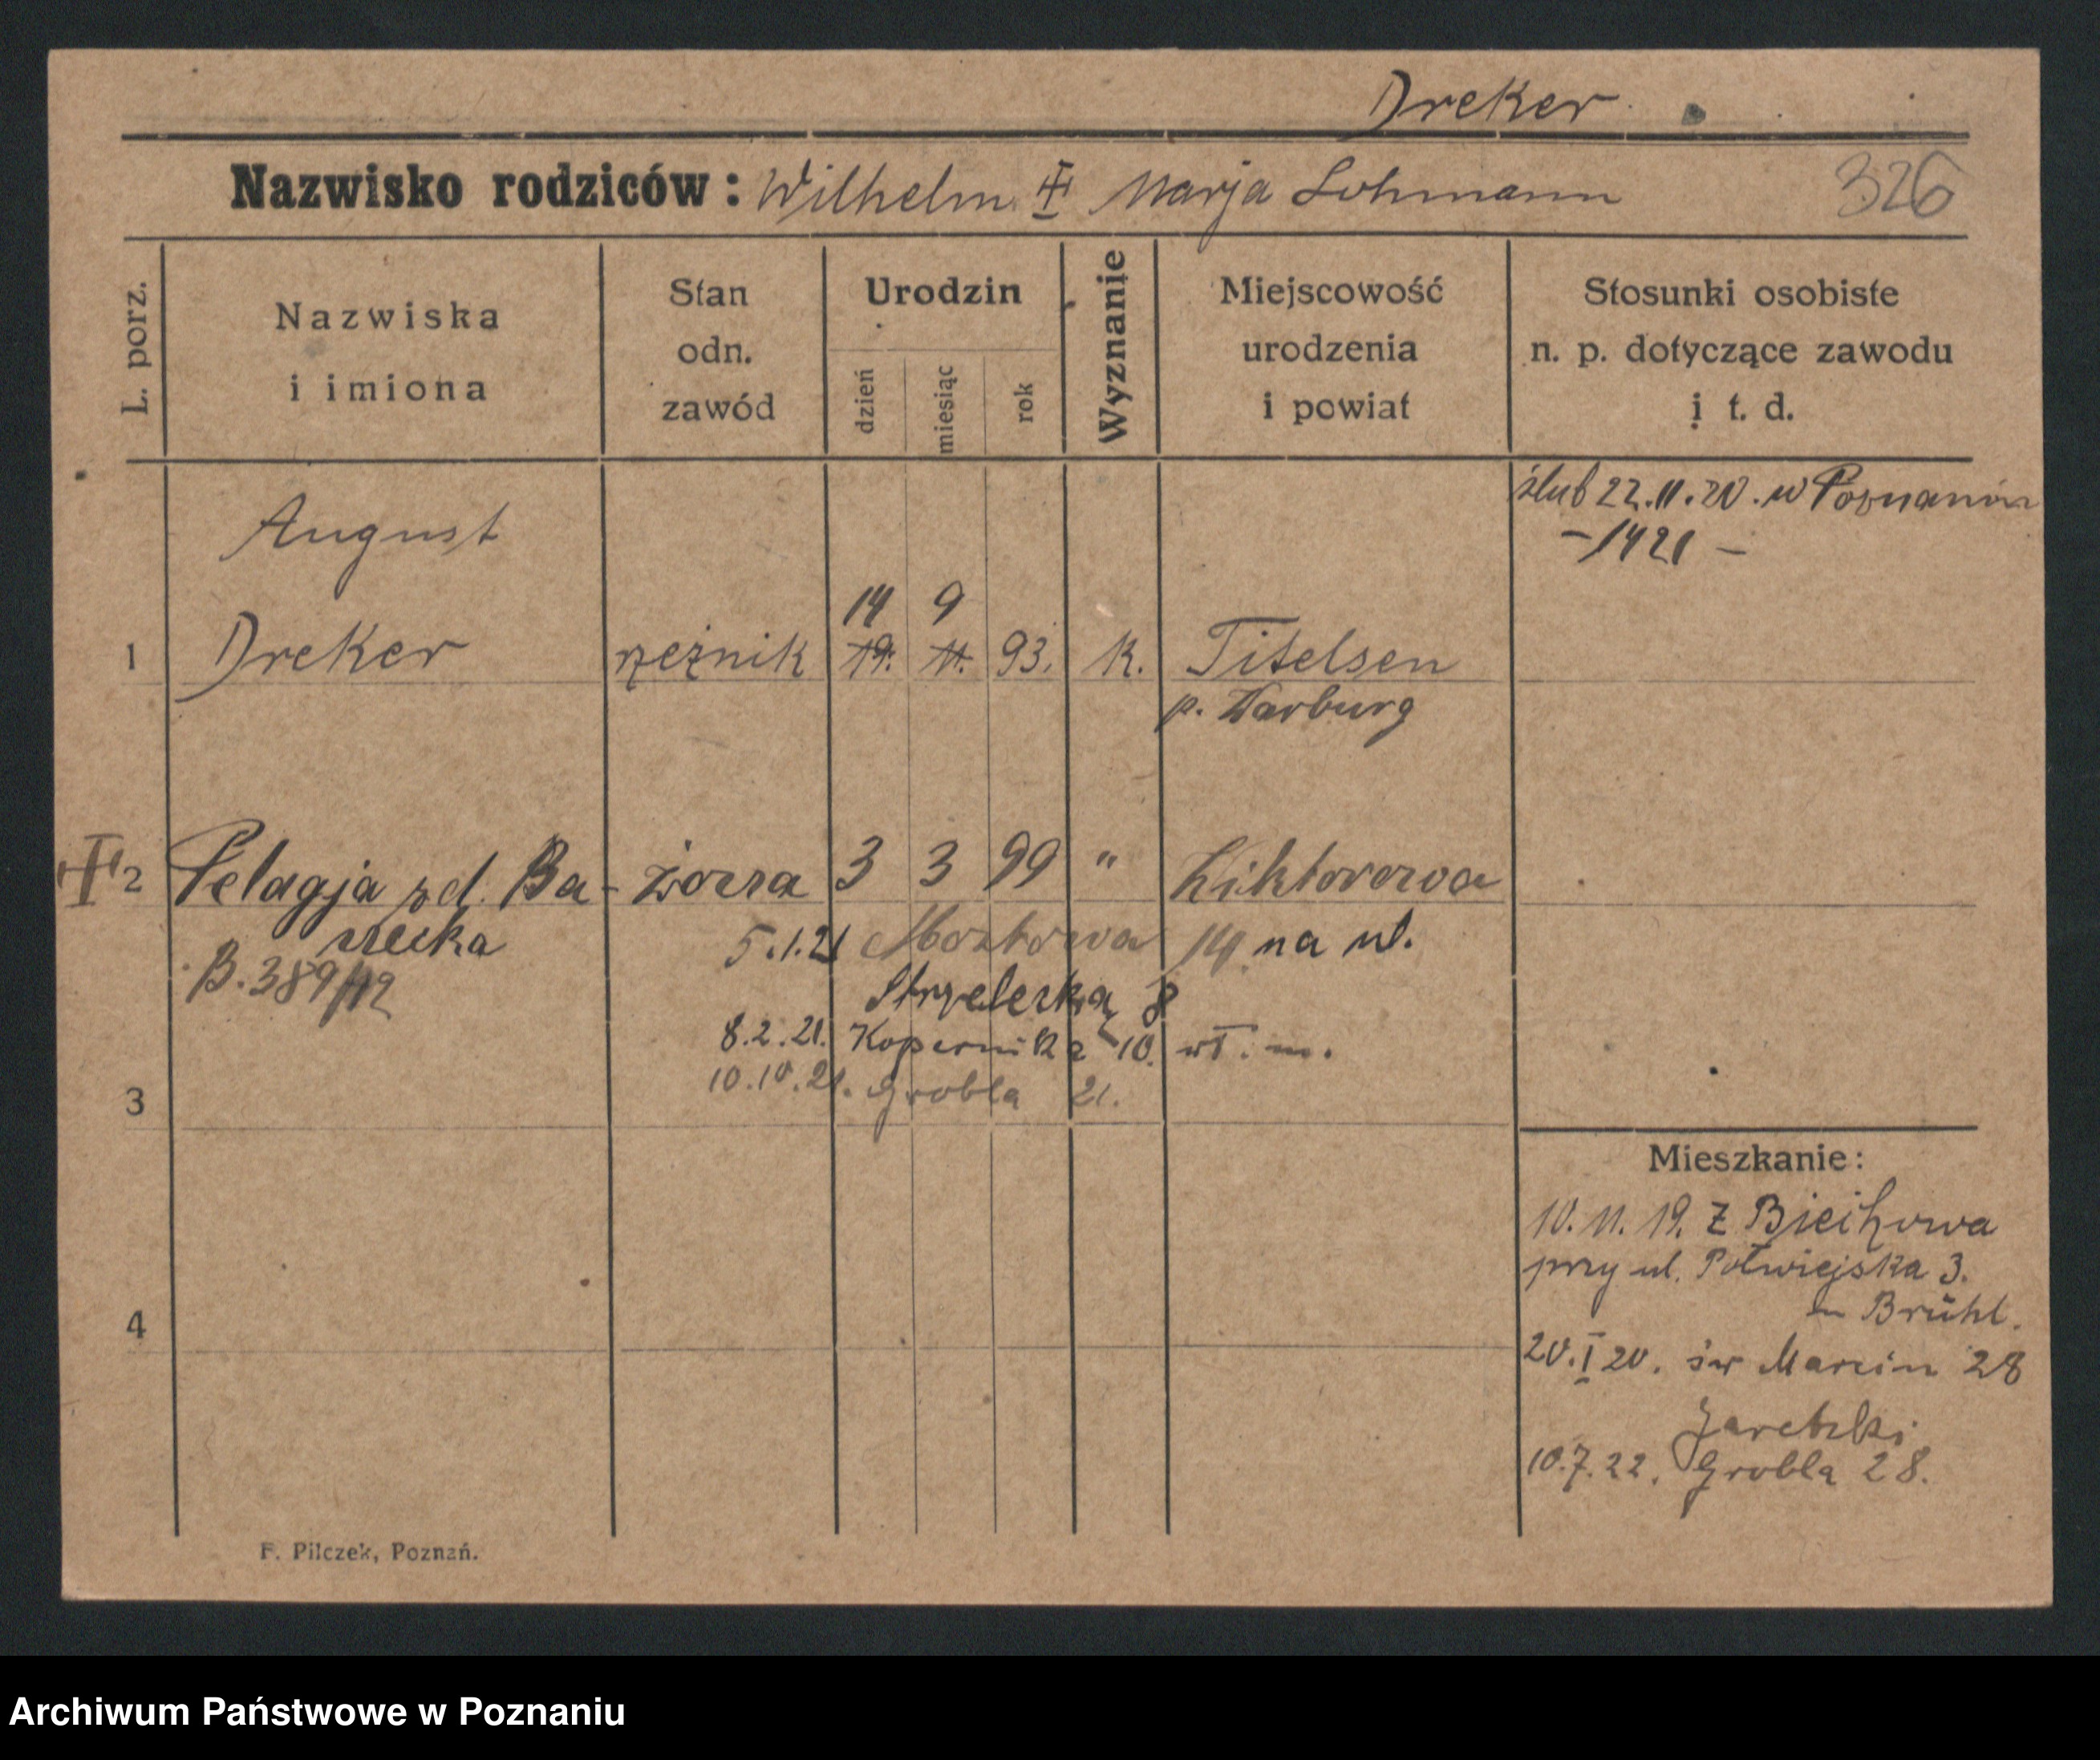 Dreker
Nazwisko rodziców: Wilhelm Marja Lohmann
326
L. porz.
Nazwiska
i imiona
Stan
odn.
zawód
Urodzin
dzień
miesiąc
rok
Wyznanie
Miejscowość
urodzenia
i powiat
Stosunki osobiste
n. p. dotyczące zawodu
i t. d.
ślub 22.11.20. w Poznaniu
- 1421 -
August
14 9
1 Dreker rzeźnik 19. 11. 93. k. Titelsen
p. Warburg
2 Pelagja Ba- żona 3 3 99 "
B. 389/
5.1.21 Mostowa 14 na ul.
Strzelecką 8
8.2.21. Kopernika 10. wł. m.
10.10.21. Grobla 21.
3
Mieszkanie:
10. 11. 19. z Biechowa
przy ul. Półwiejska 3.
Brühl.
4
20.I 20. św Marcin 28
10.7.22. Grobla 28.
F. Pilczek, Poznań.
Archiwum Państwowe w Poznaniu